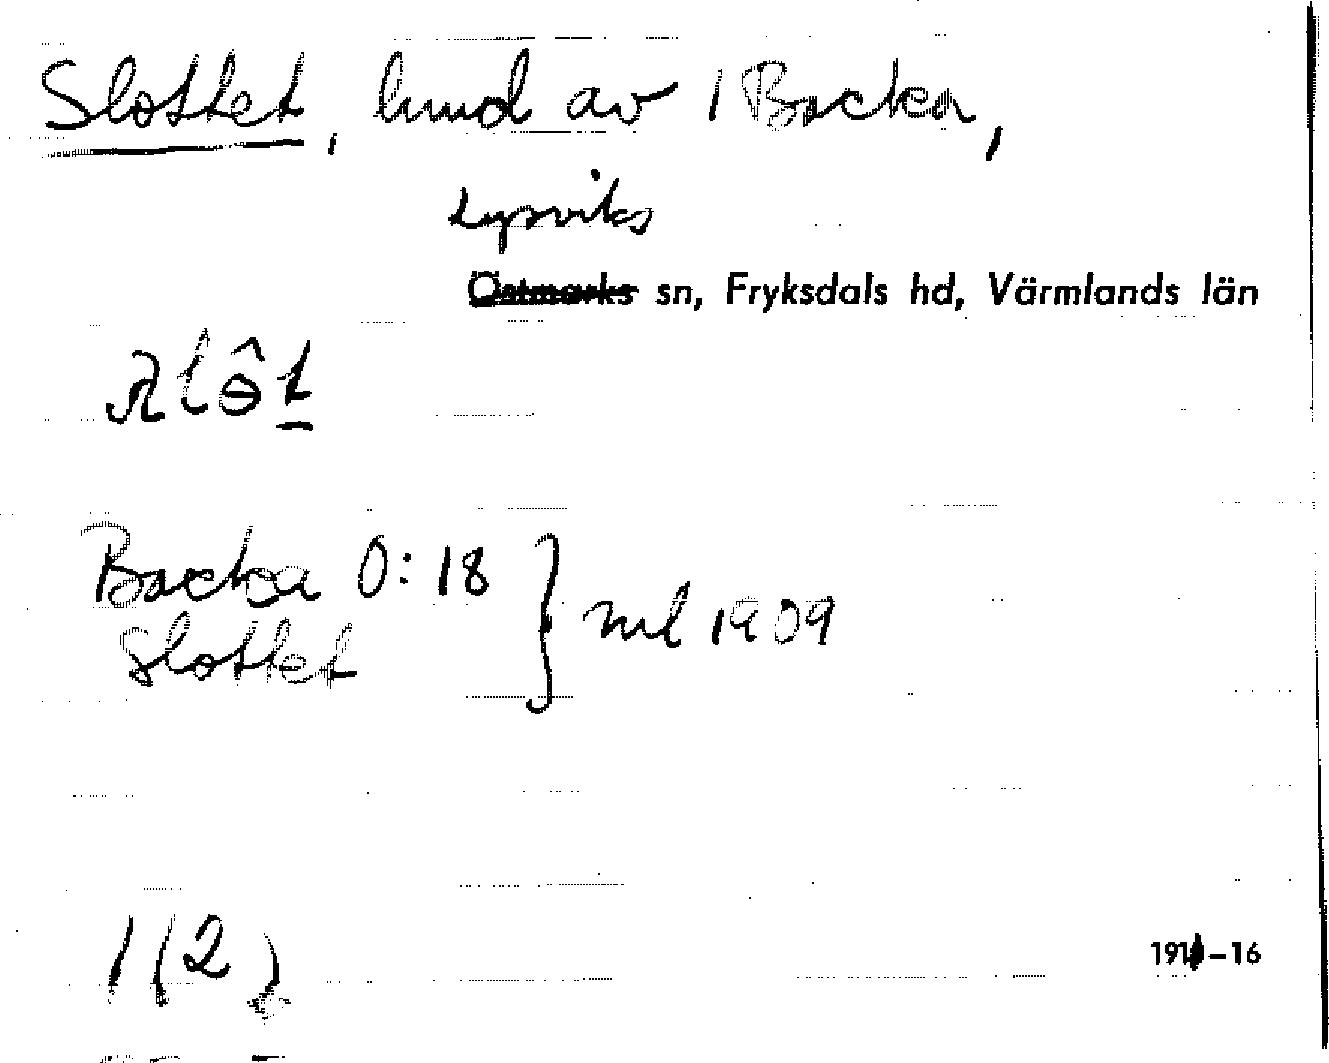 Slottet, hmd av 1 Backa,
Lysviks
Östmarks sn, Fryksdals hd, Värmlands län
Backa 0:18
Slottet } ml 1909
1 (2)
191 -16